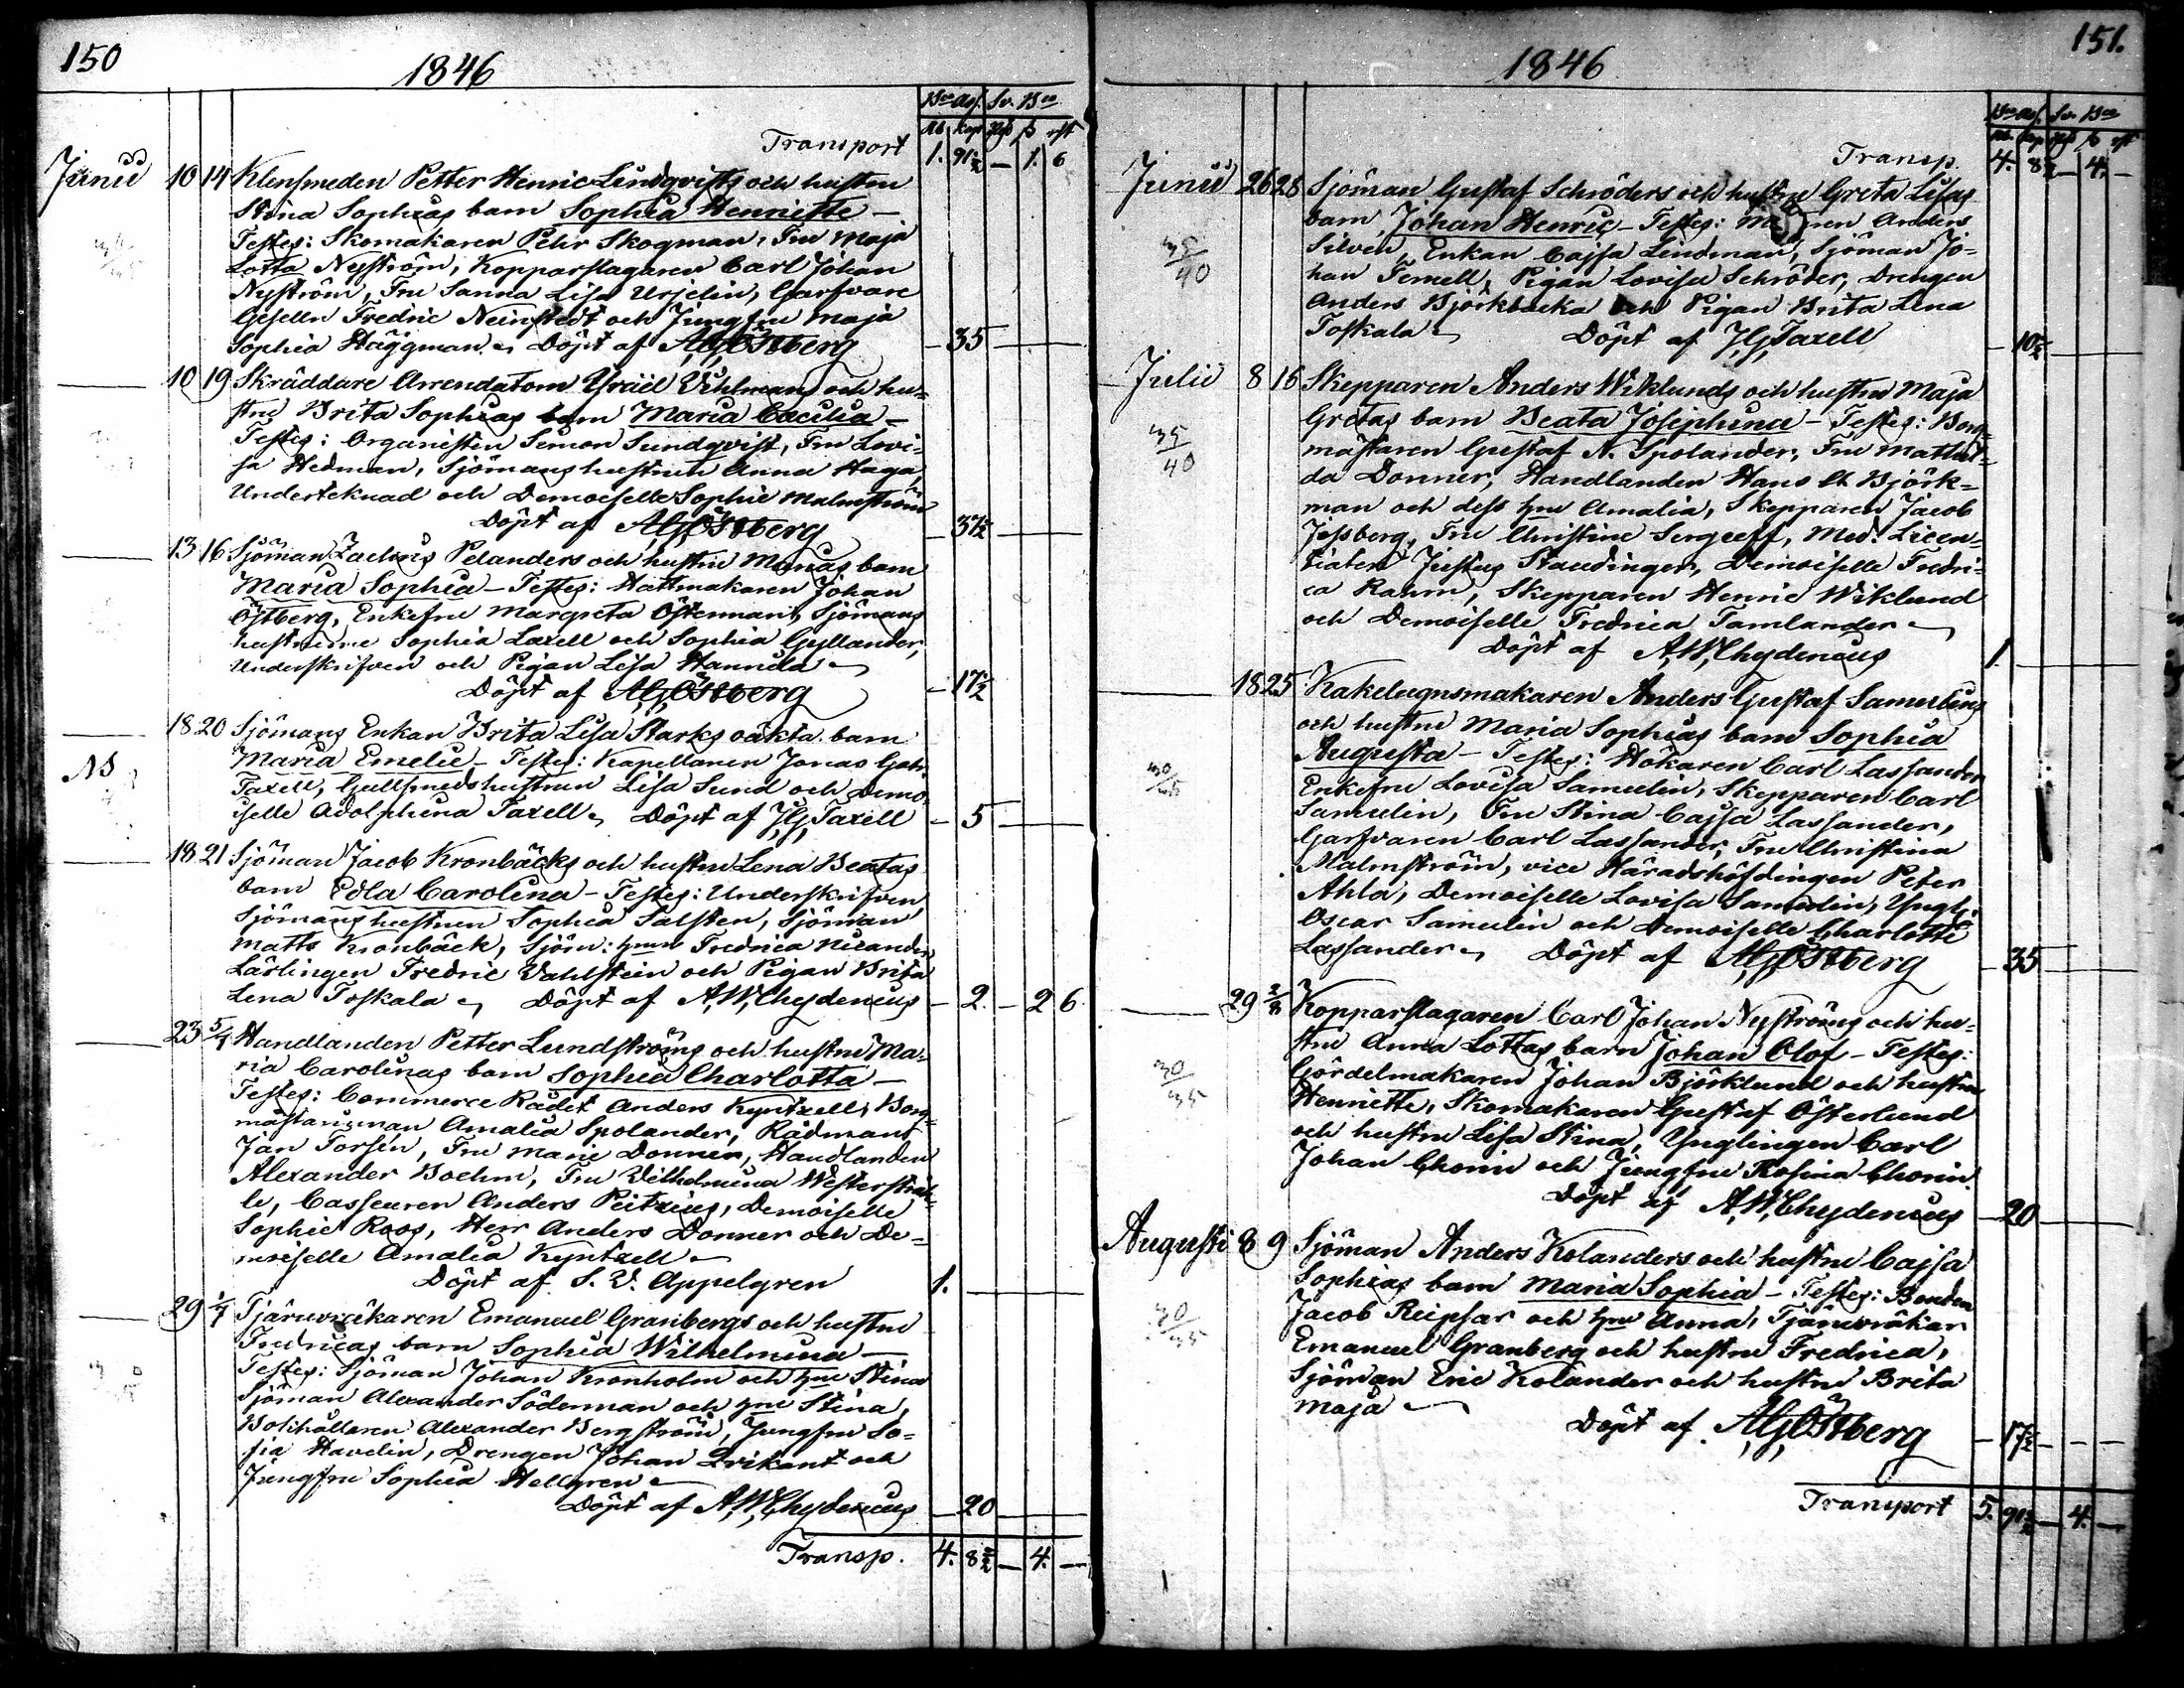 150
1846
Bco Ass. Sv. Bco
Rb. Kop. Rgs ß rst
Transport 1. 91½ — 1. 6
Junii 10 14 Klensmeden Petter Henric Lindqvists och hustru
Stina Sophias barn Sophia Henriette —
Testes: Skomakaren Petter Skogman, Fru Maja
Lotta Nyström, Kopparslagaren Carl Johan
Nyström, Fru Sanna Lisa Urjelin, Garfvare
Gesellen Fredric Neinstedt och Jungfru Maja
Sophia Häggman. Döpt af AGÖstberg — 35 —
10 19 Skräddare Arrendatorn Israël Uhlmans och hu-
stru Brita Sophias barn Maria Cæcilia —
Testes: Organisten Simon Sundqvist, Fru Lovi-
sa Hedman, Sjömans hustrun Anna Haga,
Undertecknad och Demoiselle Sophie Malmström
Döpt af AGÖstberg — 37½ —
13 16 Sjöman Zachris Pelanders och hustru Marias barn
Maria Sophia — Testes: Hattmakaren Johan
Östberg, Enkefru Margreta Österman, Sjömans
hustrurne Sophia Laxell och Sophia Gyllander,
Underskrifven och Pigan Lisa Hannula
Döpt af AGÖstberg — 17½ —
18 20 Sjömans Enkan Brita Lisa Starks oäkta barn
NS Maria Emelie — Testes: Kapellanen Jonas Gabr.
Taxell, Gullsmedshustrun Lisa Sund och Demo-
iselle Adolphina Taxell. Döpt af JGTaxell — 5 —
18 21 Sjöman Jacob Kronbäcks och hustru Lena Beatas
barn Edla Carolina — Testes: Underskrifven
Sjömans hustrun Sophia Salsten, Sjöman
Matts Kronbäck, Sjöm: hnn Fredrica Nicander
Lärlingen Fredric Vahlstein och Pigan Brita
Lena Toskala. Döpt af A.W.Chydenius — 2. — 2 6
23 5/7 Handlanden Petter Lundströms och hustru Ma-
ria Carolinas barn Sophia Charlotta —
Testes: Commerce Rådet Anders Kyntzell, Borg-
mästarinnan Amalia Spolander, Rådman
Jan Torsén, Fru Marie Donner, Handlanden
Alexander Boehm, Fru Wilhelmina Westerstråh-
le, Casseuren Anders Peitzius, Demoiselle
Sophie Roos, Herr Anders Donner och De-
moiselle Amalia Kyntzell
Döpt af S. V. Appelgren 1. —
29 1/7 Tjäruvräkaren Emanuel Granbergs och hustru
Fredricas barn Sophia Wilhelmina —
Testes: Sjöman Johan Kronholm och hnu Stina
Sjöman Alexander Söderman och hnu Stina,
Bokhållaren Alexander Bergström, Jungfru So-
fia Havelin, Drengen Johan Qvikant och
Jungfru Sophia Hellgren
Döpt af A.W.Chydenius — 20 —
Transp. 4. 8½ — 4. —
151.
1846
Bco Ass. Sv. Bco
Rb. Kop Rgs ß rst
Transp. 4. 8½ — 4. —
Junii 26 28 Sjöman Gustaf Schröders och hustru Greta Lisas
35/40 barn Johan Henric — Testes: Anders
Silvén, Enkan Cajsa Lindman, Sjöman Jo-
han Fernell, Pigan Lovisa Schröder, Drengen
Anders Björkbacka och Pigan Brita Lena
Toskala. Döpt af JGTaxell — 10½ —
Julii 8 16 Skepparen Anders Wiklunds och hustru Maja
35/40 Gretas barn Beata Josephina — Testes: Borg-
mästaren Gustaf A. Spolander, Fru Mathil-
da Donner, Handlanden Hans A Björk-
man och dess hnu Amalia, Skepparen Jacob
Jessberg, Fru Christine Sergeeff, Med. Licen-
tiaten Justus Staudinger, Demoiselle Fredri-
ca Rahm, Skepparen Henric Wiklund
och Demoiselle Fredrica Tamlander
Döpt af A.W.Chydenius 1. —
18 25 Kakelugnsmakaren Anders Gustaf Samulins
och hustru Maria Sophias barn Sophia
30/35 Augusta — Testes: Hökaren Carl Lassander
Enkefru Lovisa Samulin, Skepparen Carl
Samulin, Fru Stina Cajsa Lassander,
Garfvaren Carl Lassander, Fru Christina
Malmström, vice Häradshöfdingen Peter
Ahla, Demoiselle Lovisa Samulin, Yngl:
Oscar Samulin och Demoiselle Charlotte
Lassander. Döpt af AGÖstberg — 35 —
29 2/8 Kopparslagaren Carl Johan Nyströms och hu-
stru Anna Lottas barn Johan Olof — Testes:
30/35 Gördelmakaren Johan Björklund och hustru
Henriette, Skomakaren Gustaf Österlund
och hustru Lisa Stina, Ynglingen Carl
Johan Chorin och Jungfru Rosina Chorin.
Döpt af A.W.Chydenius — 20 —
Augusti 8 9 Sjöman Anders Kolanders och hustru Cajsa
Sophias barn Maria Sophia — Testes: Bonden
30/35 Jacob Reipsar och hnu Anna, Tjäruvräkar
Emanuel Granberg och hustru Fredrica,
Sjöman Eric Kolander och hustru Brita
Maja
Döpt af AGÖstberg — 17½ —
Transport 5. 91½ — 4. —